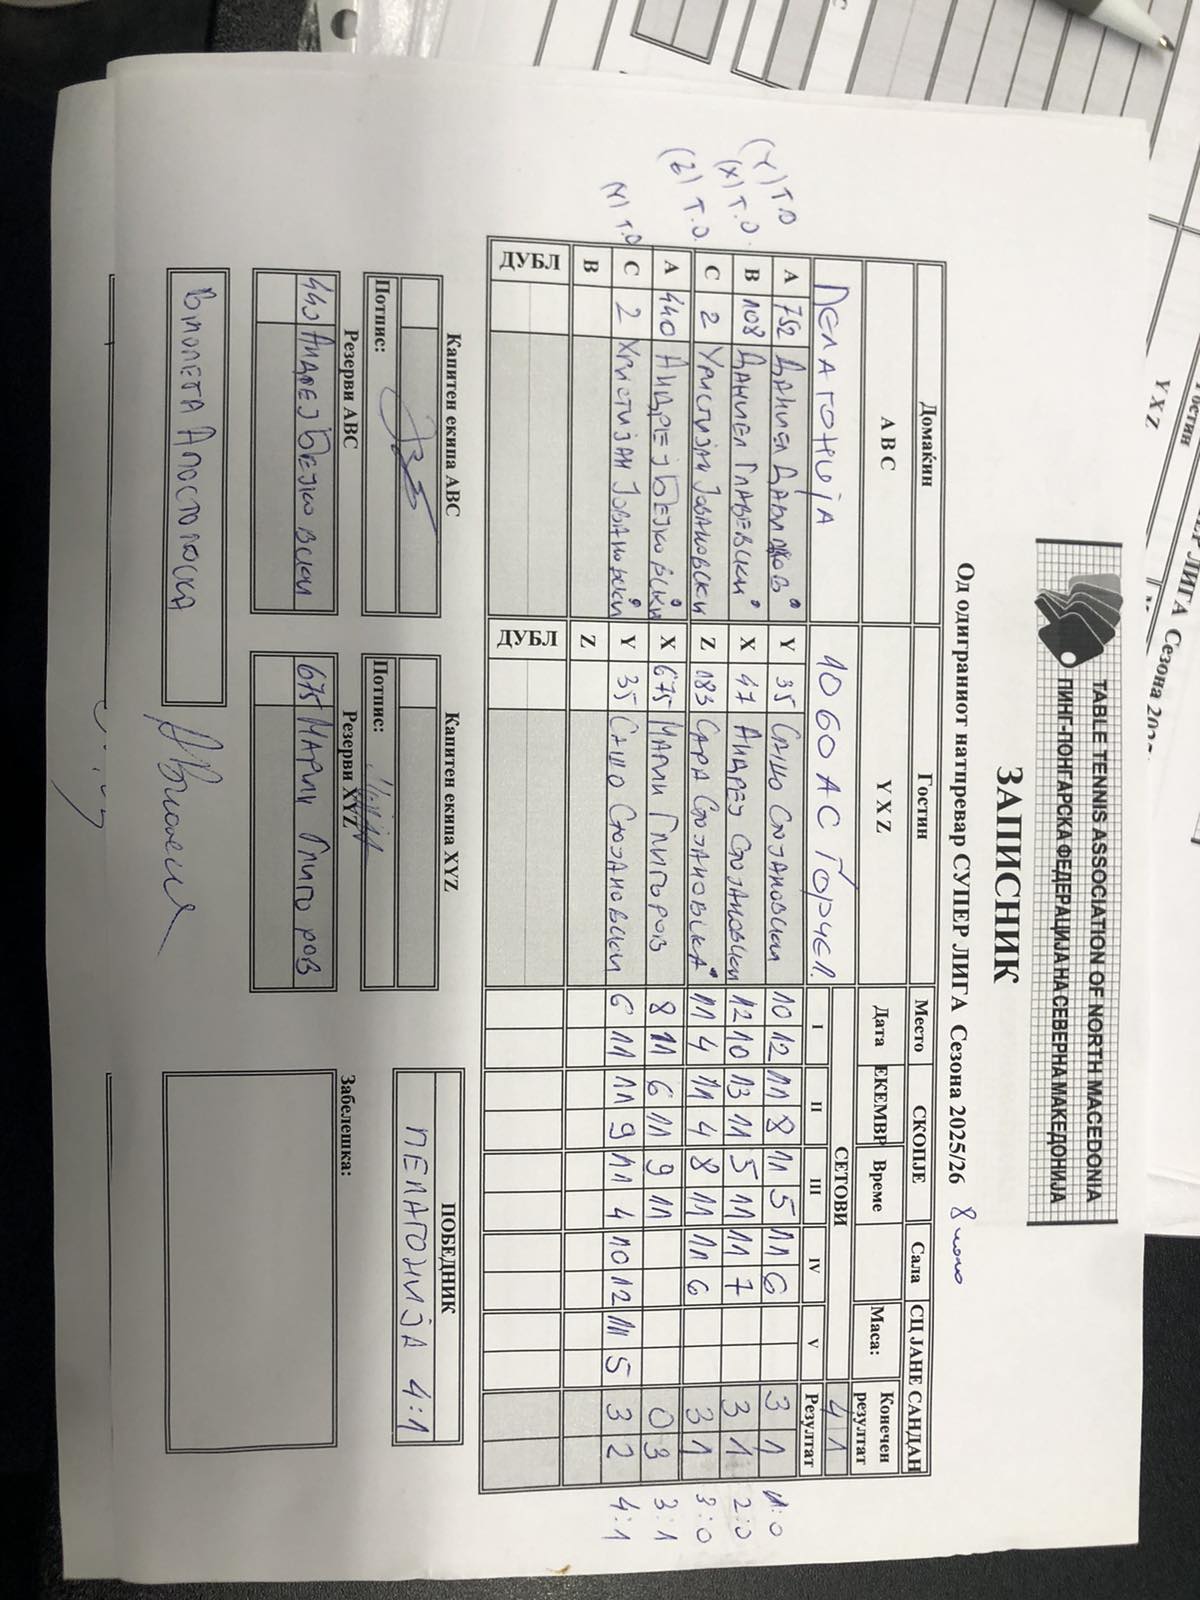 TABLE TENNIS ASSOCIATION OF NORTH MACEDONIA
ПИНГ-ПОНГАРСКА ФЕДЕРАЦИЈА НА СЕВЕРНА МАКЕДОНИЈА
ЗАПИСНИК
Од одиграниот натпревар СУПЕР ЛИГА Сезона 2025/26 8 коло
Домаќин Гостин Место СКОПЈЕ Сала СЦ ЈАНЕ САНДАН
A B C Y X Z Дата ЕКЕМВР Време Маса: Конечен резултат
ПЕЛАГОНИЈА 10 60 АС ЃОРЧЕ П. СЕТОВИ 4 1
I II III IV V Резултат
(Y) T.O A 752 ДАНИЕЛ Y 35 САШО СТОЈАНОВСКИ 10 12 11 8 11 5 11 6 3 1 1:0
(X) T.O. B 108 ДАНИЕЛ ГЛАВЕВСКИ X 47 АНДРЕЈ СТОЈАНОВСКИ 12 10 13 11 5 11 11 7 3 1 2:0
(Z) T.O. C 2 ХРИСТИЈАН ЈОВАНОВСКИ Z 183 САРА СТОЈАНОВСКА 11 4 11 4 8 11 11 6 3 1 3:0
A 440 АНДРЕЈ БЕЈКОВСКИ X 675 МАРИ ГЛИГОРОВ 8 11 6 11 9 11 0 3 3:1
(Y) T.O C 2 ХРИСТИЈАН ЈОВАНОВСКИ Y 35 САШО СТОЈАНОВСКИ 6 11 11 9 11 4 10 12 11 5 3 2 4:1
B Z
ДУБЛ ДУБЛ
Капитен екипа ABC Капитен екипа XYZ ПОБЕДНИК
ПЕЛАГОНИЈА 4:1
Потпис: Потпис:
Резерви ABC Резерви XYZ Забелешка:
440 АНДРЕЈ БЕЈКОВСКИ 675 МАРИ ГЛИГОРОВ
ВИОЛЕТА АПОСТОЛОСКА